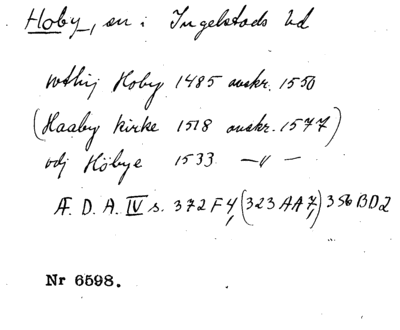 Hoby, sn i Ingelstads hd
wthij Hoby 1485 avskr. 1550
(Haaby kirke 1518 avskr. 1577)
vdj Høbye 1533 —〃—
Æ. D. A. IV s. 372 F 4, (323 AA 7,) 356 BD 2
Nr 6598.